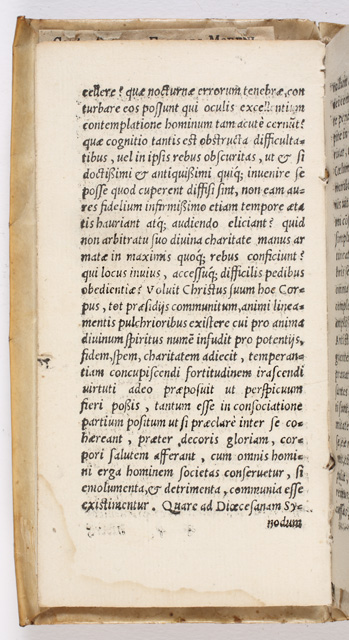 cellere? quæ nocturnæ errorum tenebræ, con
turbare eos possunt qui oculis excellentium
contemplatione hominum tam acutè cernũt?
quæ cognitio tantis est obstructa difficulta-
tibus, vel in ipsis rebus obscuritas, ut & si
doctißimi & antiquißimi quiq; invenire se
posse quod cuperent diffisi sint, non eam au-
res fidelium infirmißimo etiam tempore æta
tis hauriant atq; audiendo eliciant? quid
non arbitratu suo diuina charitate manus ar
matæ in maximis quoq; rebus conficiunt?
qui locus inuius, accessuq; difficilis pedibus
obedientiæ? Voluit Christus suum hoc Cor-
pus, tot præsidijs communitum, animi linea-
mentis pulchrioribus existere cui pro anima
diuinum spiritus numẽ infudit pro potentijs,
fidem, spem, charitatem adiecit, temperan-
tiam concupiscendi fortitudinem irascendi
uirtuti adeo præposuit ut perspicuum
fieri poßis, tantum esse in consociatione
partium positum ut si præclarè inter se co-
hæreant, præter decoris gloriam, cor-
pori salutem afferant, cum omnis homi-
ni erga hominem societas conseruetur, si
emolumenta, & detrimenta, communia esse
existimentur. Quare ad Diœcesanam Sy-
nodum